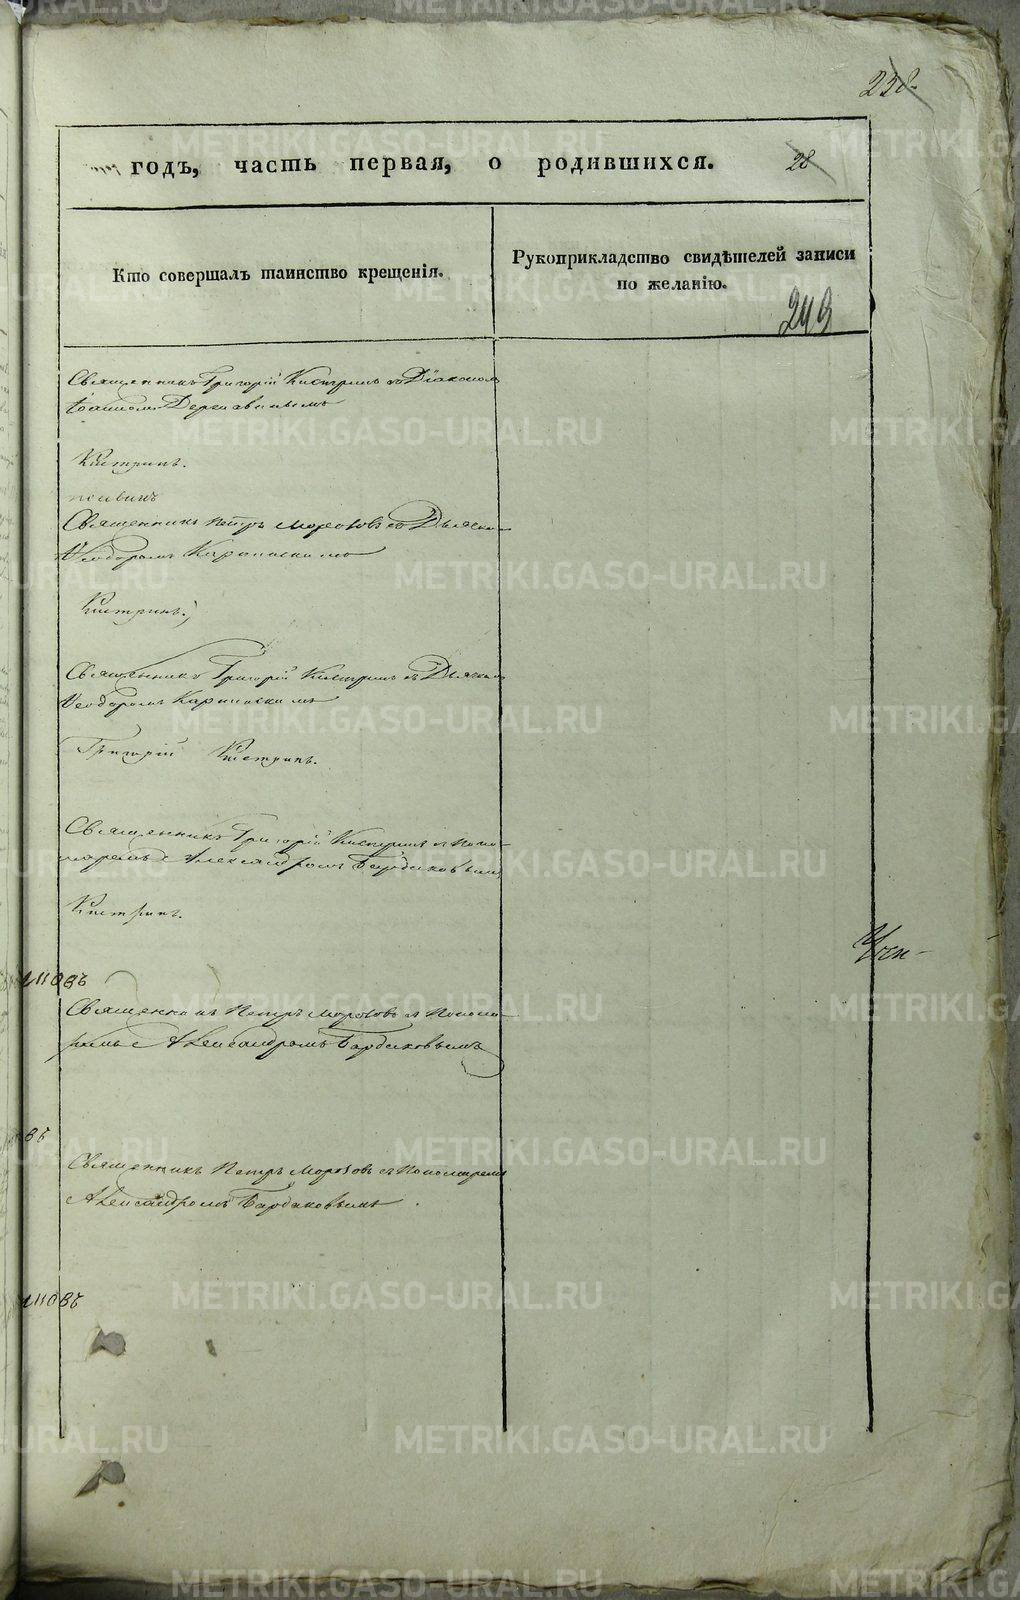 238.
годъ, часть первая, о родившихся.
28
Кто совершалъ таинство крещенія.
Рукоприкладство свидѣтелей записи
по желанію.
243
Священникъ Григорій Кистринъ съ Діакономъ
Іоанномъ
Кистринъ.
Священникъ Петръ Морозовъ съ Дьячко-
Ѳеодоромъ Карпинскимъ
Кистринъ.
Священникъ Григорій Кистринъ съ Дьячкомъ
Ѳеодоромъ Карпинскимъ
Григорій Кистринъ.
Священникъ Григорій Кистринъ съ Поно-
маремъ Александромъ Бардаковымъ
Кистринъ.
Священникъ Петръ Морозовъ съ Понома-
ремъ Александромъ Бардаковымъ
Священникъ Петръ Морозовъ съ Пономаремъ
Александромъ Бардаковымъ.
METRIKI.GASO-URAL.RU